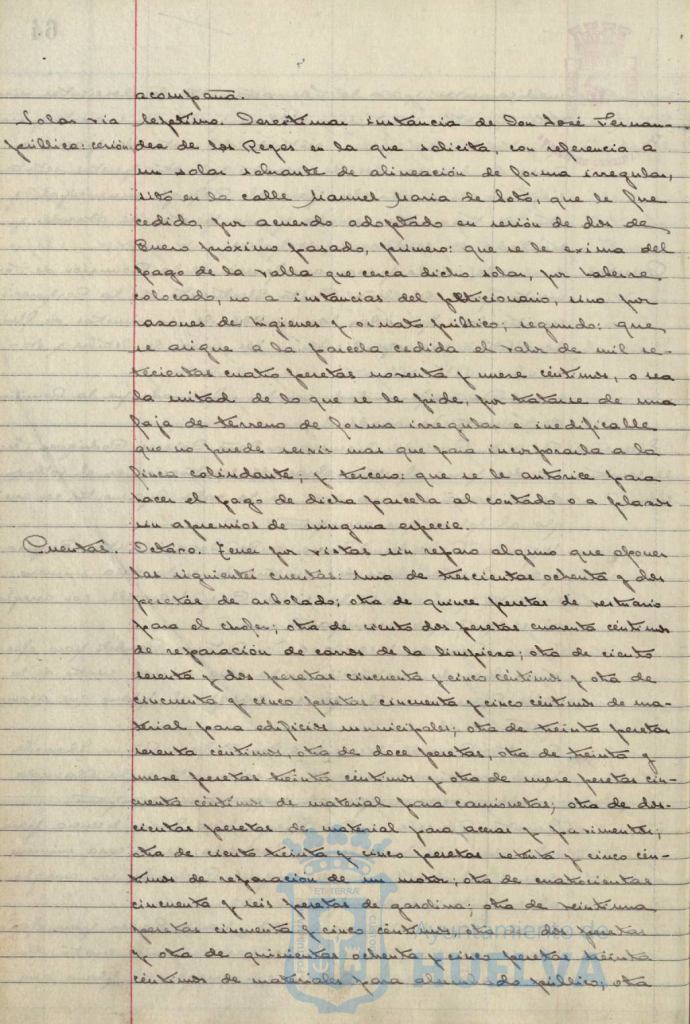 acompaña.
Solar vía
pública: cesión
Septimo. Desestimar instancia de Don José Fernan-
dez de los Reyes en la que solicita, con referencia a
un solar sobrante de alineación de forma irregular,
sito en la calle Manuel Maria de Soto, que le fue
cedido, por acuerdo adoptado en sesión de dos de
Enero próximo pasado, primero: que se le exima del
pago de la valla que cerca dicho solar, por haberse
colocado, no a instancias del peticionario, sino por
razones de higienes y ornato público; segundo: que
se asigne a la parcela cedida el valor de mil se-
tecientas cuatro pesetas noventa y nueve céntimos, o sea
la mitad de lo que se le pide, por tratarse de una
faja de terreno de forma irregular e inedificable
que no puede servir mas que para incorporarla a la
finca colindante; y tercero: que se le autorice para
hacer el pago de dicha parcela al contado o a plazos
sin apremios de ninguna especie.
Cuentas.
Octavo. Tener por vistas sin reparo alguno que oponer
las siguientes cuentas: una de trescientas ochenta y dos
pesetas de arbolado; otra de quince pesetas de vestuario
para el chofer; otra de ciento dos pesetas cuarenta céntimos
de reparación de carros de la limpieza; otra de ciento
sesenta y dos pesetas cincuenta y cinco céntimos y otra de
cincuenta y cinco pesetas cincuenta y cinco céntimos de ma-
terial para edificios municipales; otra de treinta pesetas
sesenta céntimos, otra de doce pesetas, otra de treinta y
nueve pesetas treinta céntimos y otra de nueve pesetas cin-
cuenta céntimos de material para camionetas; otra de dos-
cientas pesetas de material para aceras y pavimentos;
otra de ciento treinta y cinco pesetas setenta y cinco cén-
timos de reparación de un motor; otra de cuatrocientas
cincuenta y seis pesetas de gasolina; otra de veintiuna
pesetas cincuenta y cinco céntimos otra de dos pesetas
y otra de quinientas ochenta y cinco pesetas treinta
céntimos de materiales para alumbrado público, otra
Ayuntamiento
HUELVA